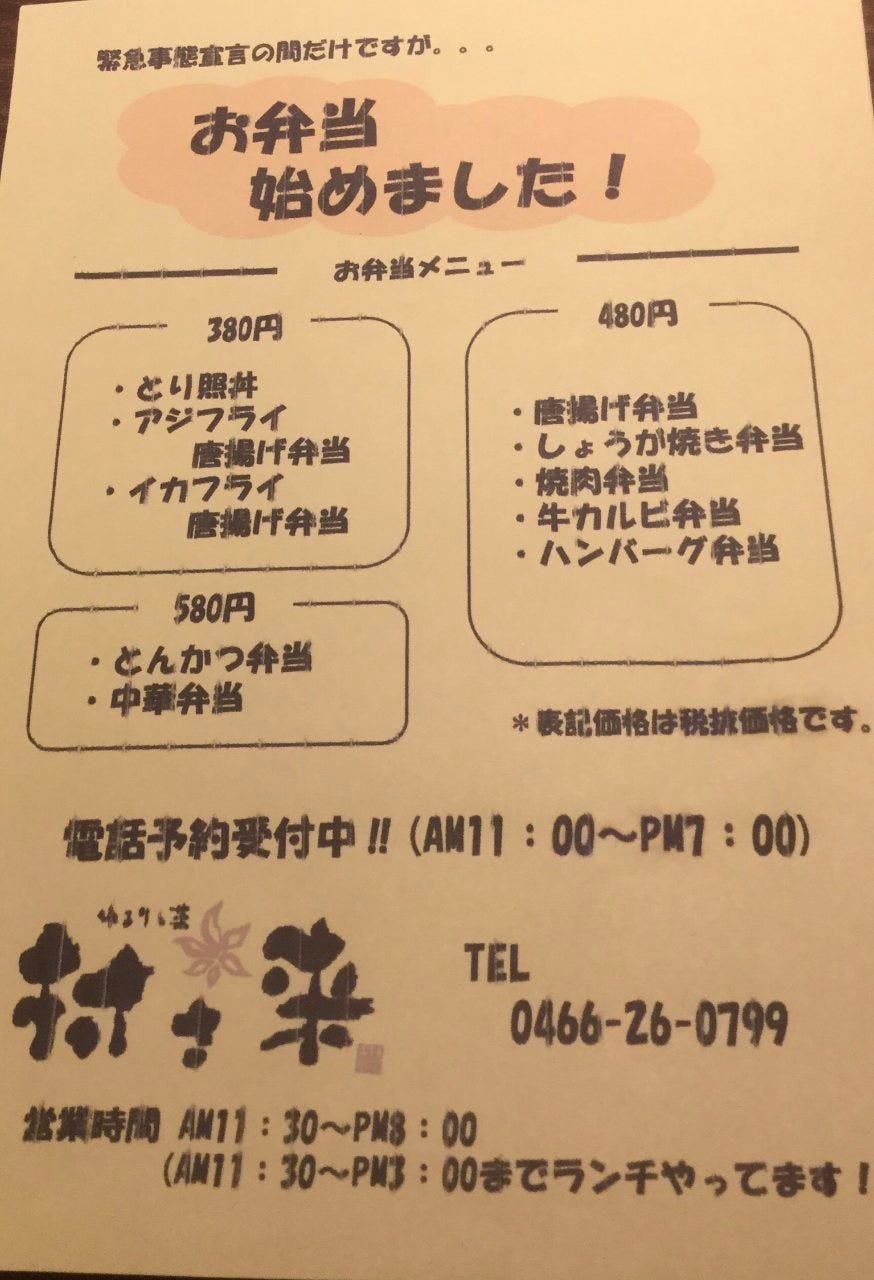 緊急事態宣言の間だけですが。。。
お弁当
始めました！
お弁当メニュー
380円
・とり照丼
・アジフライ
唐揚げ弁当
・イカフライ
唐揚げ弁当
580円
・とんかつ弁当
・中華弁当
480円
・唐揚げ弁当
・しょうが焼き弁当
・焼肉弁当
・牛カルビ弁当
・ハンバーグ弁当
＊表記価格は税抜価格です。
電話予約受付中!!（AM11：00～PM7：00）
TEL
0466-26-0799
営業時間 AM11：30～PM8：00
（AM11：30～PM3：00までランチやってます！